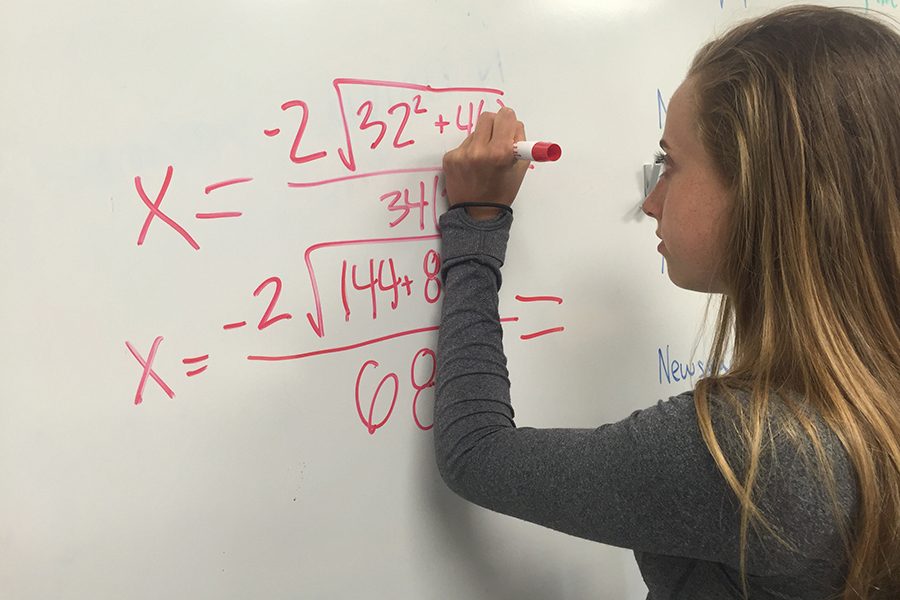 x = -2√32² + 4
34(
x = -2√144 + 8
68
=
News